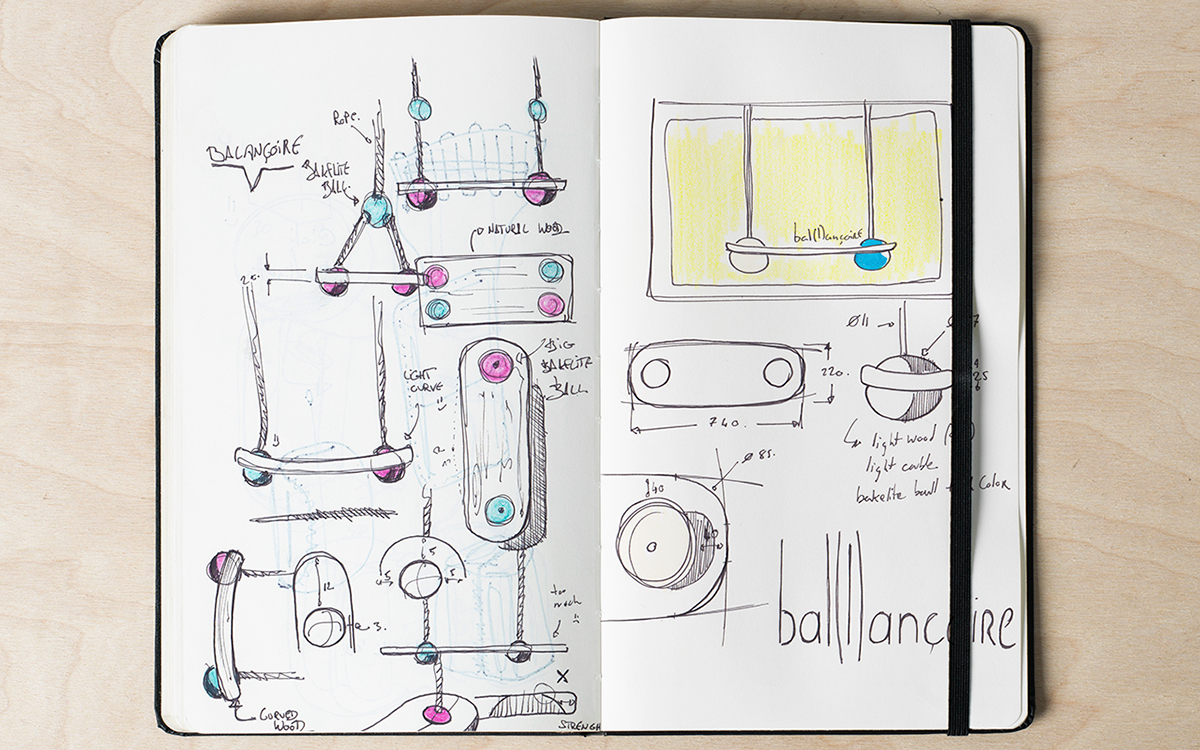 BALANÇOIRE
ROPE.
BAKELITE
BALL.
NATURAL WOOD
20.
LIGHT
CURVE
BIG
BAKELITE
BALL
5
5
5
12
3.
too
much
X
CURVED
WOOD
STRENGH
balllllançoire
Ø11
220.
740.
25
light wood
light cable
bakelite ball
Color
Ø 85.
140
40
balllllançoire